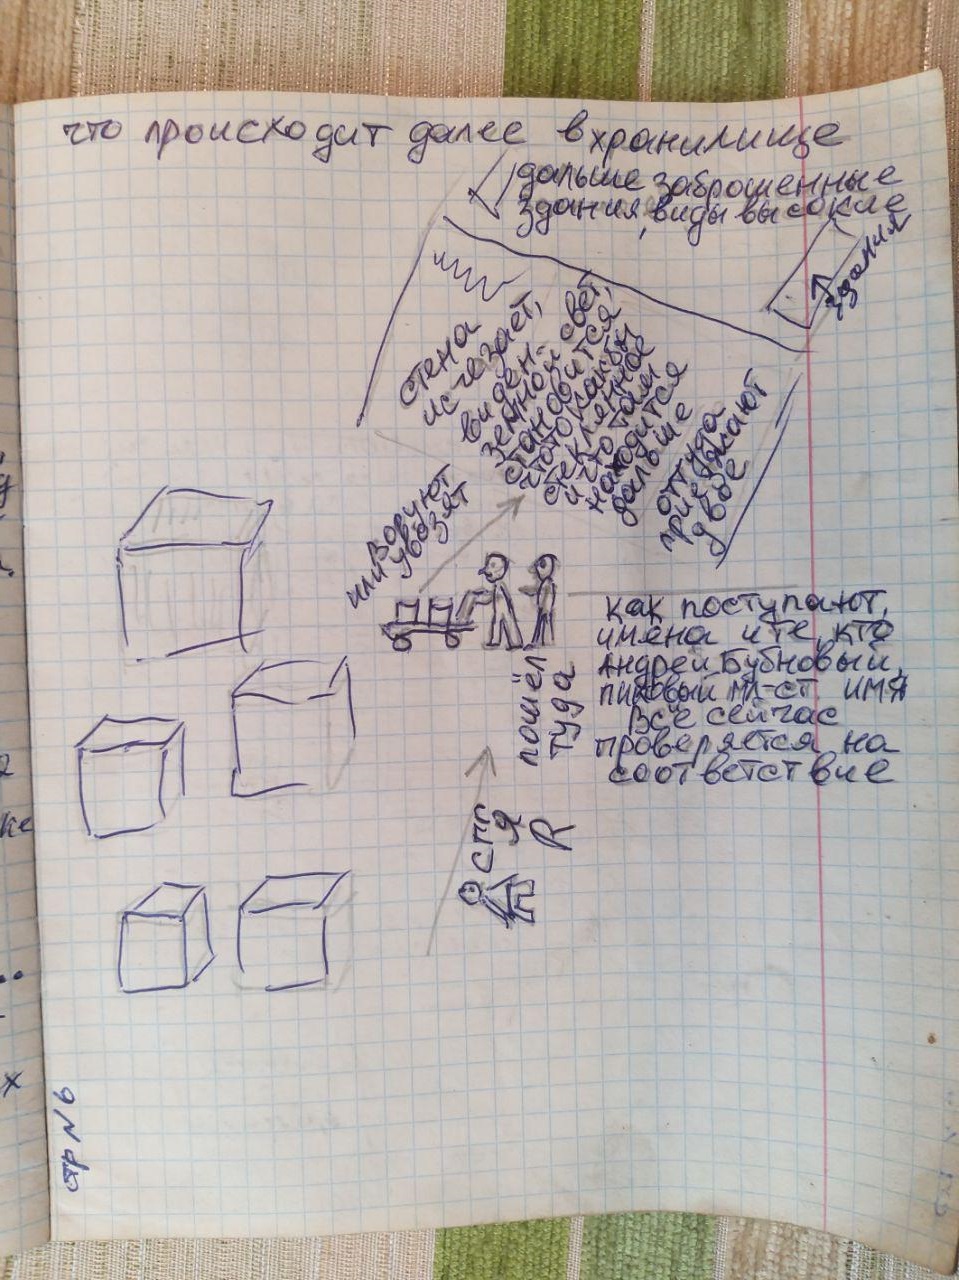 что происходит далее в хранилище
дальше заброшенные
здания, виды высокие
здания
стена
исчезает,
виден
земной свет,
становится
что то как бы
стеклянное
и что там
находится
дальше
оттуда
приезжают
двое
или воруют
увозят
как поступают,
имена и те, кто
Андрей Бубновый,
пиковый мл-ст имя
всё сейчас
проверяется на
соответствие
пошёл
туда
я
R
стр N 6